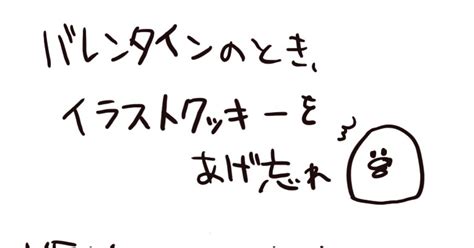 バレンタインのとき、
イラストクッキーを
あげ忘れ